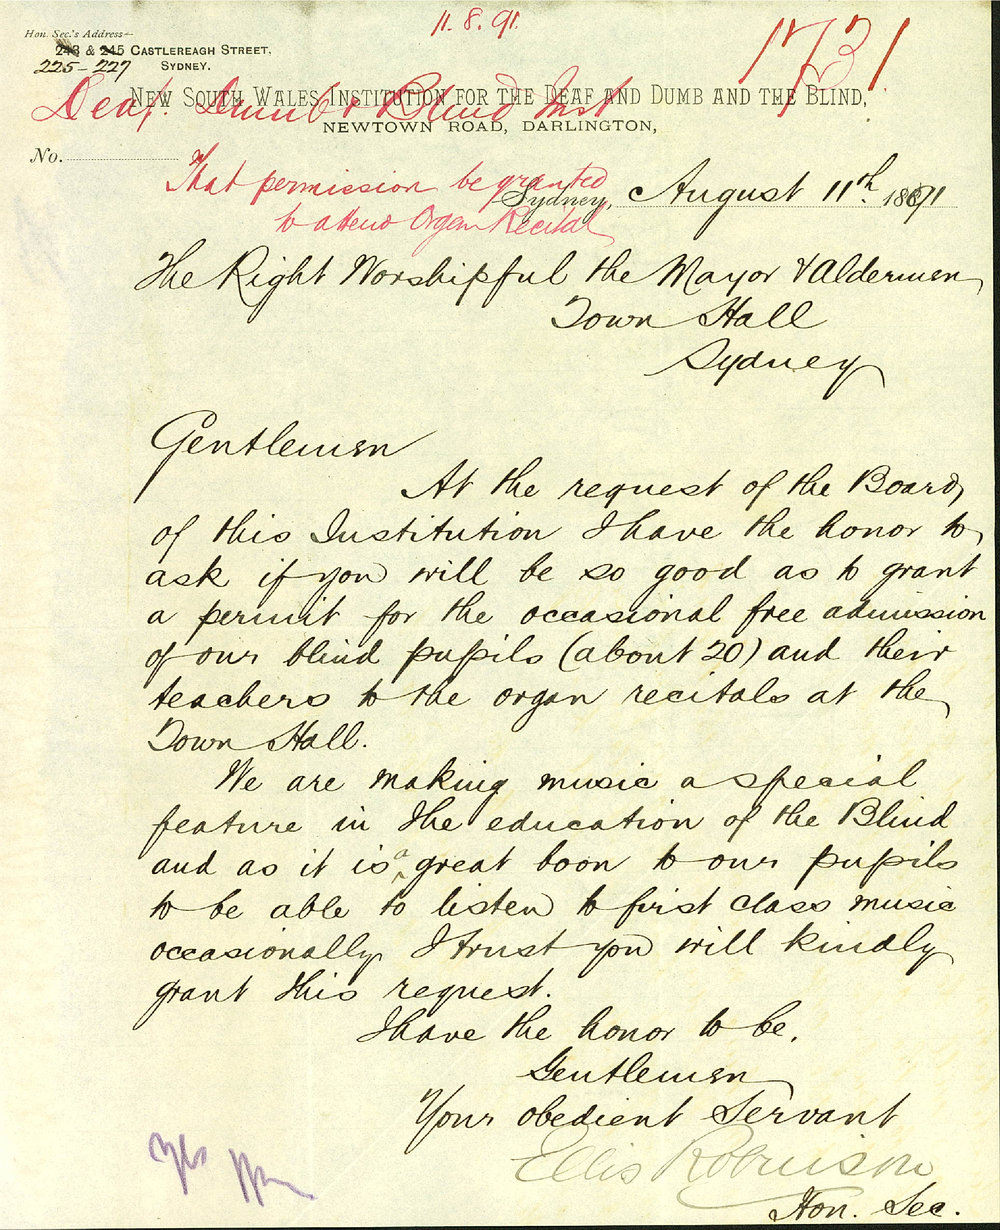 11.8.91.
1731
Hon. Sec.'s Address—
243 & 245 Castlereagh Street,
225-227 Sydney.
Deaf. Dumb & Blind Inst
New South Wales Institution for the Deaf and Dumb and the Blind,
Newtown Road, Darlington,
No.
That permission be granted
to attend Organ Recital
Sydney, August 11th. 1891
The Right Worshipful the Mayor & Aldermen
Town Hall
Sydney
Gentlemen
At the request of the Board,
of this Institution I have the honor to,
ask if you will be so good as to grant
a permit for the occasional free admission
of our blind pupils (about 20) and their
teachers to the organ recitals at the
Town Hall.
We are making music a special
feature in the education of the Blind
and as it is a great boon to our pupils
to be able to listen to first class music
occasionally I trust you will kindly
grant this request.
I have the honor to be,
Gentlemen
Your obedient Servant
Ellis Robinson
Hon. Sec.